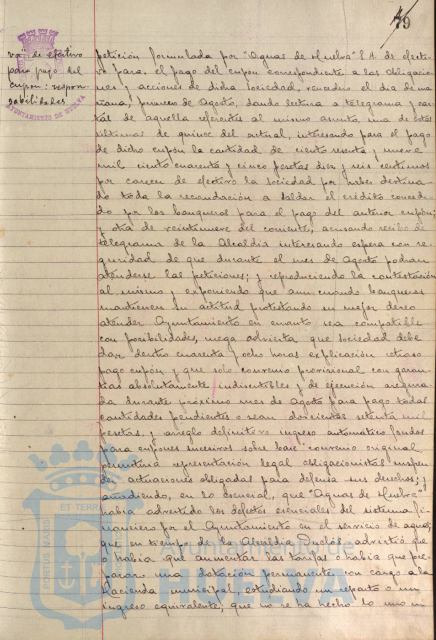 79
va de efectivo
para pago del
cupón: respon-
sabilidades.
AYUNTAMIENTO DE HUELVA
petición formulada por "Aguas de Huelva" S.A. de efecti-
vo para el pago del cupón correspondiente a las obligacio-
nes y acciones de dicha sociedad, vencedero el día de ma-
ñana, primero de Agosto, dando lectura a telegrama y car-
tas de aquella referentes al mismo asunto, una de estas
últimas de quince del actual, interesando para el pago
de dicho cupón la cantidad de ciento sesenta y nueve
mil ciento cuarenta y cinco pesetas diez y seis céntimos
por carecer de efectivo la sociedad por haber destina-
do toda la recaudación a saldar el crédito conce-
do por los banqueros para el pago del anterior cupón;
y otra de veintinueve del corriente, acusando recibo de
telegrama de la Alcaldía interesando espera con se-
guridad de que durante el mes de Agosto podrán
atenderse las peticiones; y reproduciendo la contestación
al mismo y exponiendo que aun cuando banqueros
mantienen su actitud protestando su mejor deseo
atender Ayuntamiento en cuanto sea compatible
con posibilidades, ruega advierta que sociedad debe
dar dentro cuarenta y ocho horas explicación retraso
pago cupón y que solo convenio provisional con garan-
tías absolutamente indiscutibles y de ejecución asegura-
da durante próximo mes de Agosto para pago todas
cantidades pendientes o sean doscientas setenta mil
pesetas, y arreglo definitivo ingreso automático fondos
para cupones sucesivos sobre base convenio original
permitiría representación legal obligacionistas suspen-
der actuaciones obligadas para defensa sus derechos; y
añadiendo, en lo esencial, que "Aguas de Huelva"
había advertido los defectos esenciales del sistema fi-
nanciero por el Ayuntamiento en el servicio de aguas,
que en tiempo de la Alcaldía Duclós advirtió que
o había que aumentar las tarifas o había que pre-
parar una dotación permanente con cargo a la
Hacienda municipal, estudiando un reparto o un
ingreso equivalente; que no se ha hecho lo uno ni